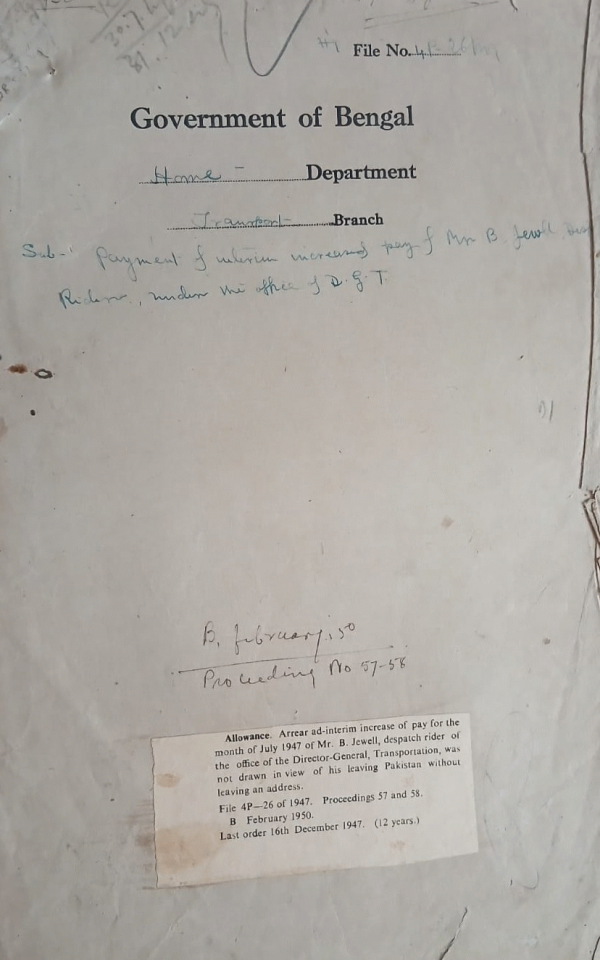 30.7.
31.12
File No. 4P-26
Government of Bengal
Home - Department
Transport Branch
Sub-: Payment of interim increased pay of Mr B. Jewell
Rider, under the office of D.G.T.
B, february, 50
Proceeding No 57-58
Allowance. Arrear ad-interim increase of pay for the
month of July 1947 of Mr. B. Jewell, despatch rider of
the office of the Director-General, Transportation, was
not drawn in view of his leaving Pakistan without
leaving an address.
File 4P—26 of 1947. Proceedings 57 and 58.
B February 1950.
Last order 16th December 1947. (12 years.)